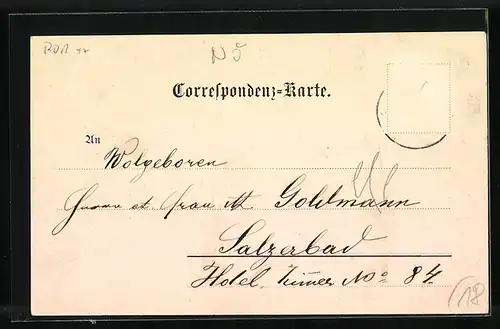 NŠ
Correspondenz-Karte.
An
Wolgeboren
Herrn et frau M. Goldmann
Salzerbad
Hotel Zimer No 84
18